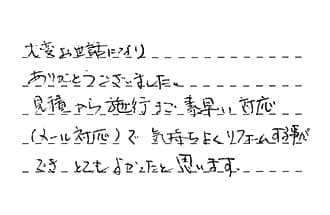 大変お世話になり
ありがとうございました。
見積から施行まで素早い対応
(メール対応)で気持ちよくリフォームする事が
でき とてもよかったと思います.